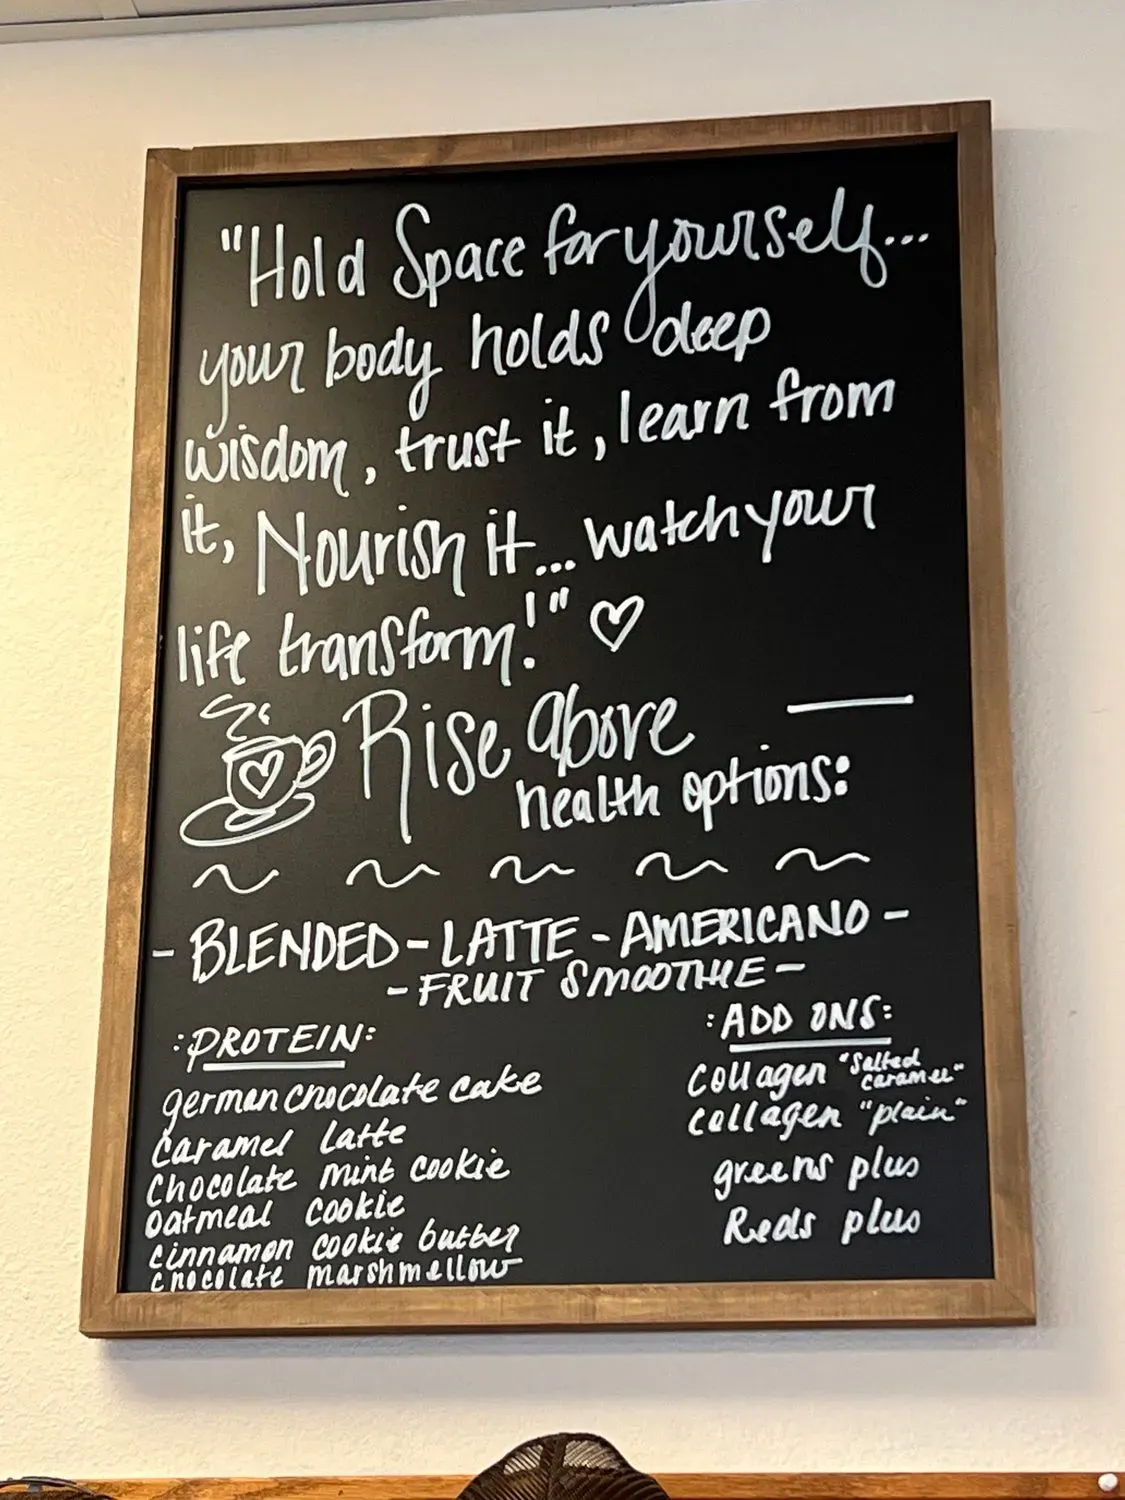 "Hold Space for yourself...
your body holds deep
wisdom, trust it, learn from
it, Nourish it... watch your
life transform!" ♡
Rise above
health options:
- BLENDED - LATTE - AMERICANO -
- FRUIT SMOOTHIE -
:PROTEIN:
german chocolate cake
Caramel latte
Chocolate mint cookie
oatmeal cookie
cinnamon cookie butter
chocolate marshmellow
:ADD ONS:
Collagen "Salted
caramel"
collagen "plain"
greens plus
Reds plus